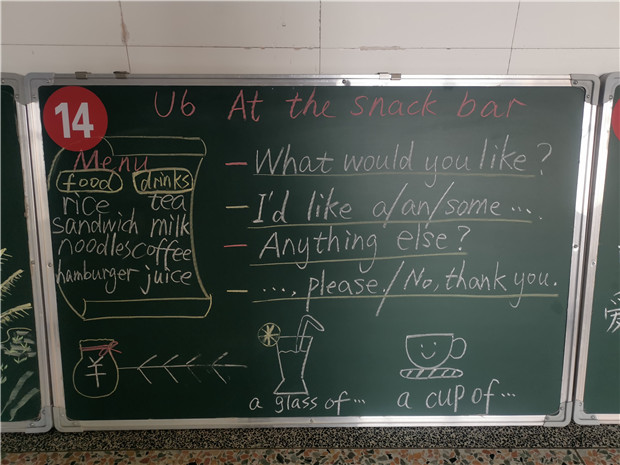 14
U6 At the snack bar
Menu
food drinks
rice tea
sandwich milk
noodles coffee
hamburger juice
— What would you like?
— I'd like a/an/some ….
— Anything else?
— …, please./No, thank you.
¥
a glass of …
a cup of …
爱